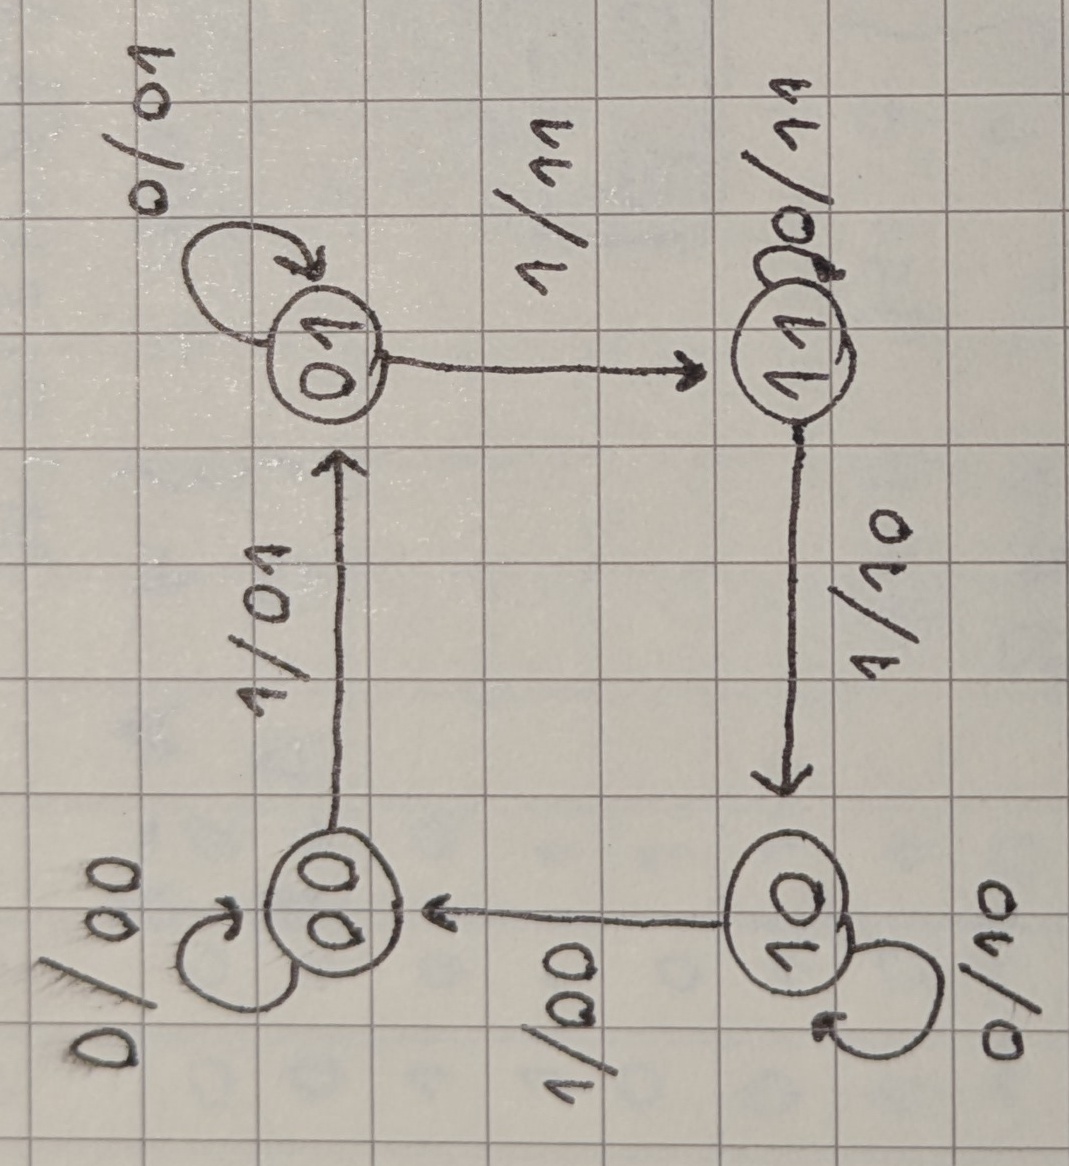 0/00
0/01
1/01
00
01
1/00
1/11
10
11
0/11
1/10
0/10